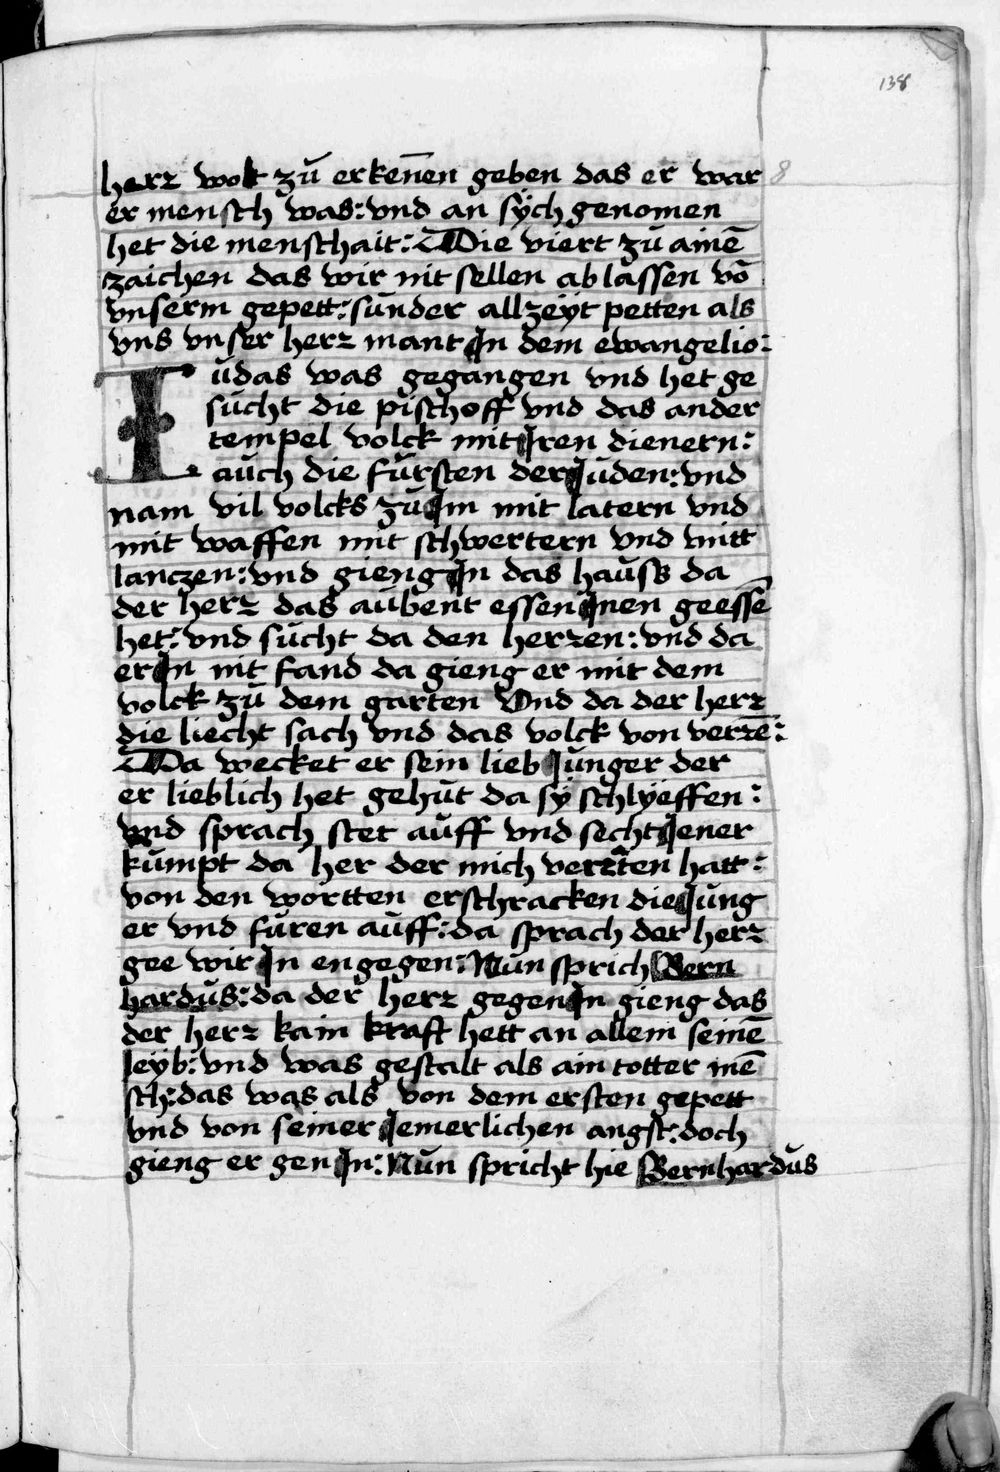 138
herr wolt zů erkeñen geben das er war 8
er mensch was: vnd an sÿch genomen
het die menschait: Die viert zů ainē
zaichen das wir nit sellen ab lassen vō
vnserm gepett: sunder allzeÿt petten als
vns vnser herr mant In dem ewangelio:
Iudas was gegangen vnd het ge
sucht die pischoff vnd das ander
tempel volck mit Iren dienern:
auch die fürsten der Juden: vnd
nam vil volcks zů Im mit latern vnd
mit waffen mit schwertern vnd mitt
lanczen: vnd gieng In das hauss da
der herr das aubent essen Inen geessē
het: vnd sucht da den herren: vnd da
er In nit fand da gieng er mit dem
volck zů dem garten Vnd da der herr
die liecht sach vnd das volck von verrē:
Da wecket er sein lieb Junger der
er lieblich het gehůt da sÿ schlÿeffen:
vnd sprach stet auff vnd secht Jener
kumpt da her der mich verraten hatt:
von den wortten erschracken die Jung
er vnd furen auff: da sprach der herr
gee wir In engegen: Nun sprich Bern
hardus: da der herr gegen In gieng das
der herr kain kraft hett an allem seinē
leyb: vnd was gestalt als ain totter mē
sch: das was als von dem ersten gepett
vnd von seiner Jemerlichen angst: doch
gieng er gen In: Nun spricht hie Bernhardus